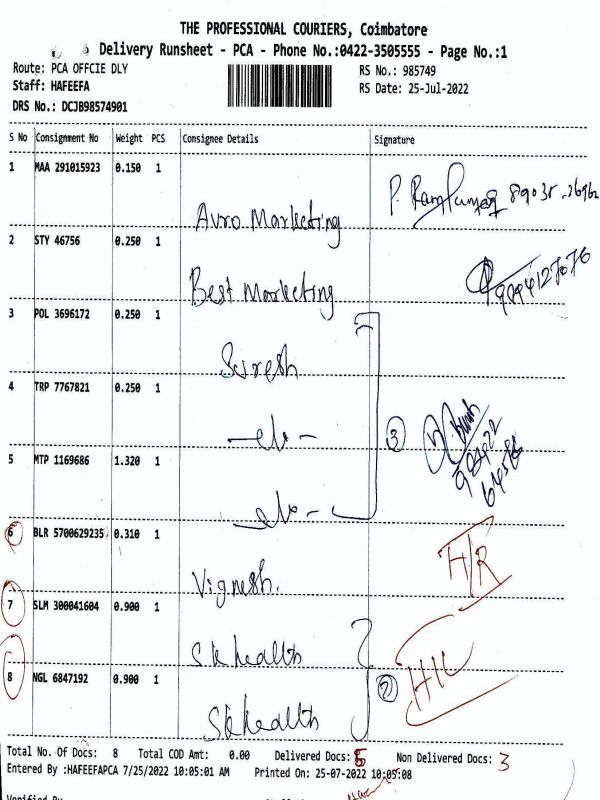 THE PROFESSIONAL COURIERS, Coimbatore
Delivery Runsheet - PCA - Phone No.:0422-3505555 - Page No.:1
Route: PCA OFFCIE DLY RS No.: 985749
Staff: HAFEEFA RS Date: 25-Jul-2022
DRS No.: DCJB98574901
S No Consignment No Weight PCS Consignee Details Signature
1 MAA 291015923 0.150 1
Avro Marketing
2 STY 46756 0.250 1
Best Marketing
3 POL 3696172 0.250 1
Suresh
4 TRP 7767821 0.250 1
3
5 MTP 1169686 1.320 1
6 BLR 5700629235 0.310 1
H/R
Vignesh.
7 SLM 300041604 0.900 1
Sk health
8 NGL 6847192 0.900 1
2
Sk health
Total No. Of Docs: 8 Total COD Amt: 0.00 Delivered Docs: 5 Non Delivered Docs: 3
Entered By :HAFEEFAPCA 7/25/2022 10:05:01 AM Printed On: 25-07-2022 10:05:08